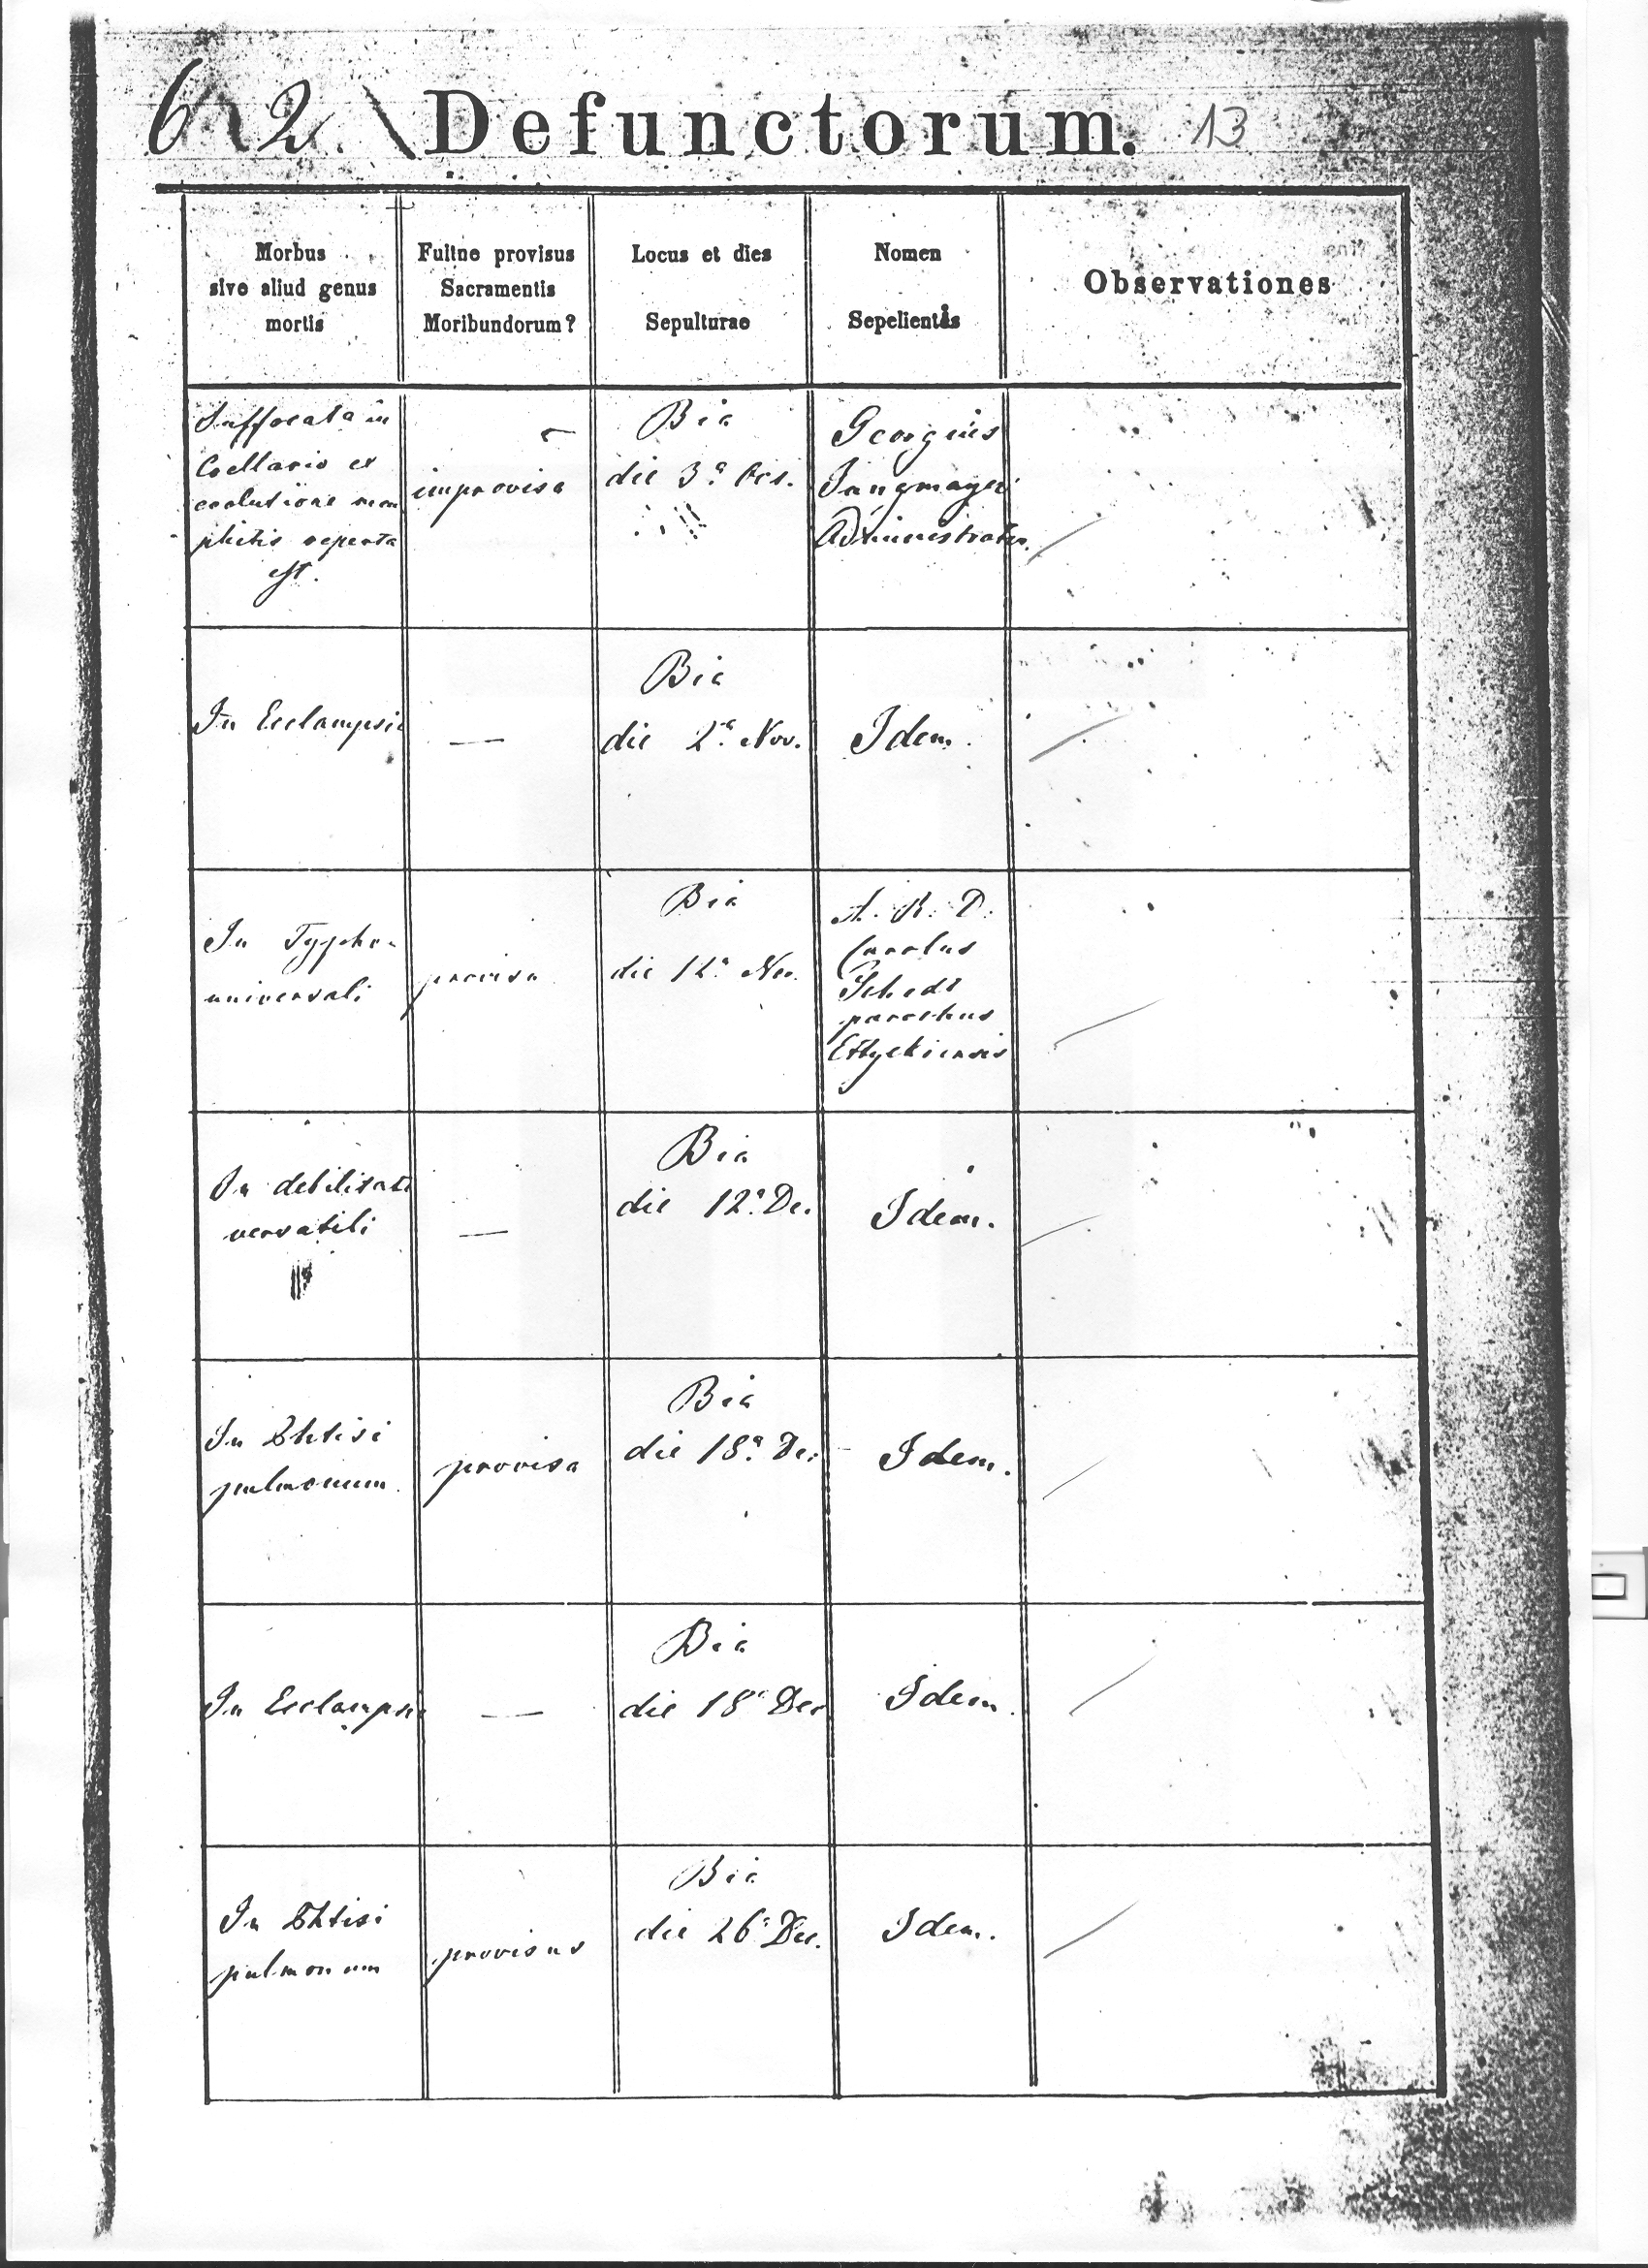 62. Defunctorum. 13
Morbus
sive aliud genus
mortis
Fuitne provisus
Sacramentis
Moribundorum?
Locus et dies
Sepulturae
Nomen
Sepelientis
Observationes
Suffocata in
Coellario ex
evolutione me
phitis reperta
est.
improvisa
Bia
die 3ª Oct.
Georgius
Jungmayer
Administrator.
In Ecclampsia
—
Bia
die 2ª Nov.
Idem.
In Typho
universali
provisa
Bia
die 12ª Nov.
A. R. D.
Carolus
Schedl
parochus
Ettyekiensis
In debilitate
versatili
—
Bia
die 12ª Dec.
Idem.
In Phtisi
pulmonum.
provisa
Bia
die 18ª Dec
Idem.
In Ecclampsia
—
Bia
die 18ª Dec
Idem.
In Phtisi
pulmonum
provisus
Bia
die 26ª Dec.
Idem.